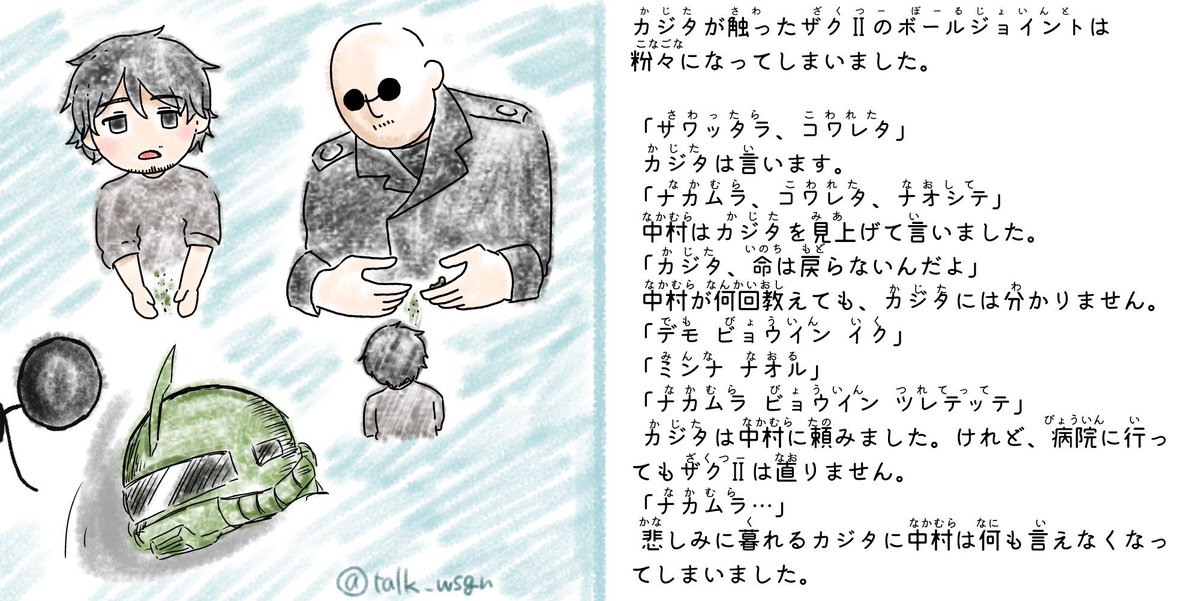 カジタが触ったザクⅡのボールジョイントは
粉々になってしまいました。
「サワッタラ、コワレタ」
カジタは言います。
「ナカムラ、コワレタ、ナオシテ」
中村はカジタを見上げて言いました。
「カジタ、命は戻らないんだよ」
中村が何回教えても、カジタには分かりません。
「デモ ビョウイン イク」
「ミンナ ナオル」
「ナカムラ ビョウイン ツレテッテ」
カジタは中村に頼みました。けれど、病院に行っ
てもザクⅡは直りません。
「ナカムラ…」
悲しみに暮れるカジタに中村は何も言えなくなっ
てしまいました。
@talk_wsgn